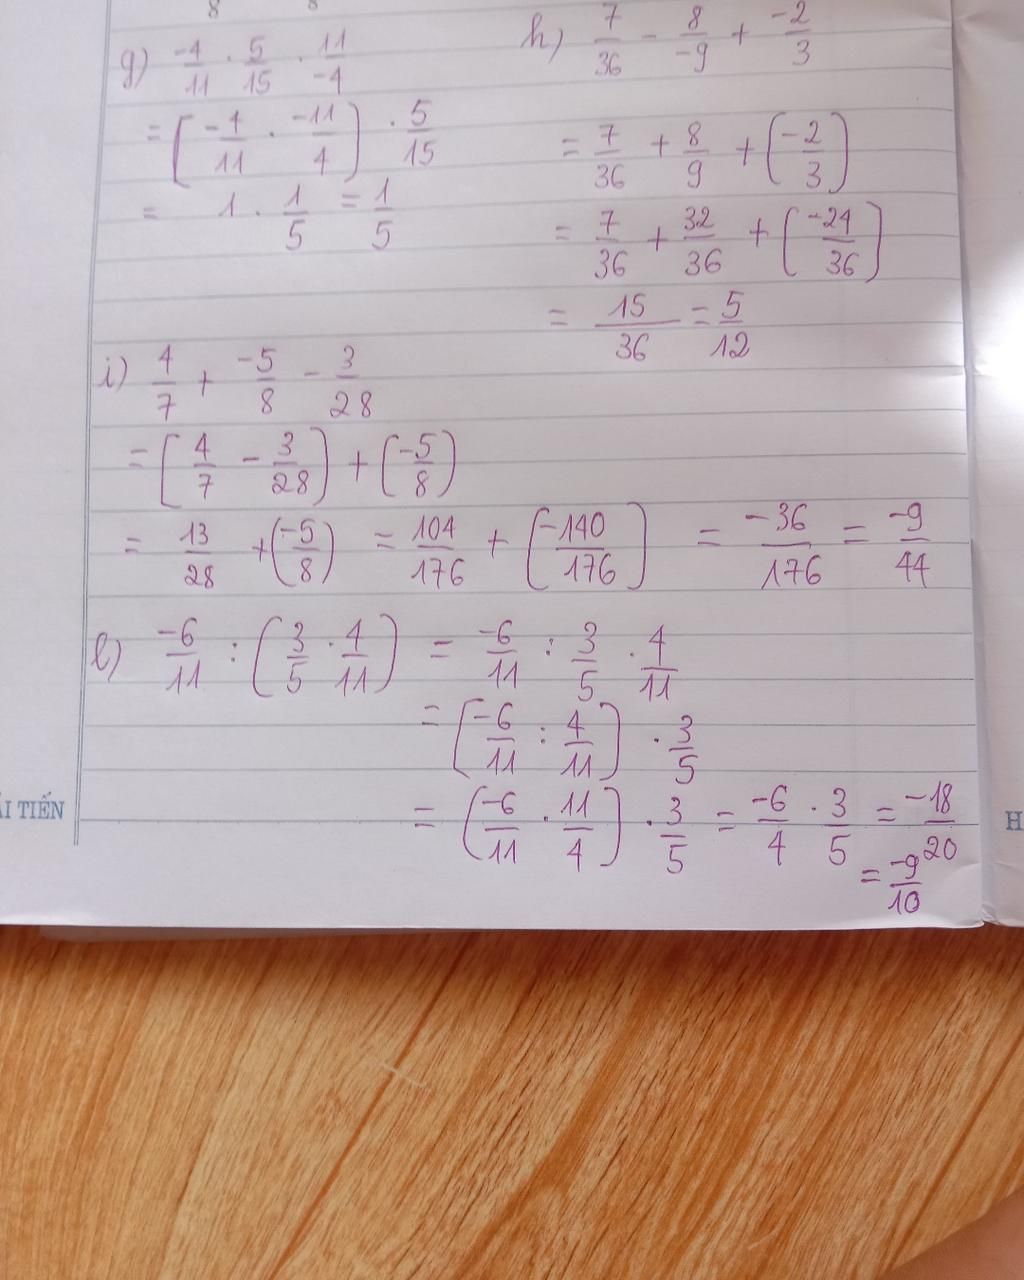 8 8
g) -4/11 . 5/15 . 11/-4
= (-4/11 . -11/4) . 5/15
= 1 . 1/5 = 1/5
h) 7/36 - 8/-9 + -2/3
= 7/36 + 8/9 + (-2/3)
= 7/36 + 32/36 + (-24/36)
= 15/36 = 5/12
i) 4/7 + -5/8 - 3/28
= (4/7 - 3/28) + (-5/8)
= 13/28 + (-5/8) = 104/176 + (-140/176) = -36/176 = -9/44
l) -6/11 : (3/5 . 4/11) = -6/11 : 3/5 . 4/11
= (-6/11 : 4/11) . 3/5
= (-6/11 . 11/4) . 3/5 = -6/4 . 3/5 = -18/20
= -9/10
ẢI TIẾN
H